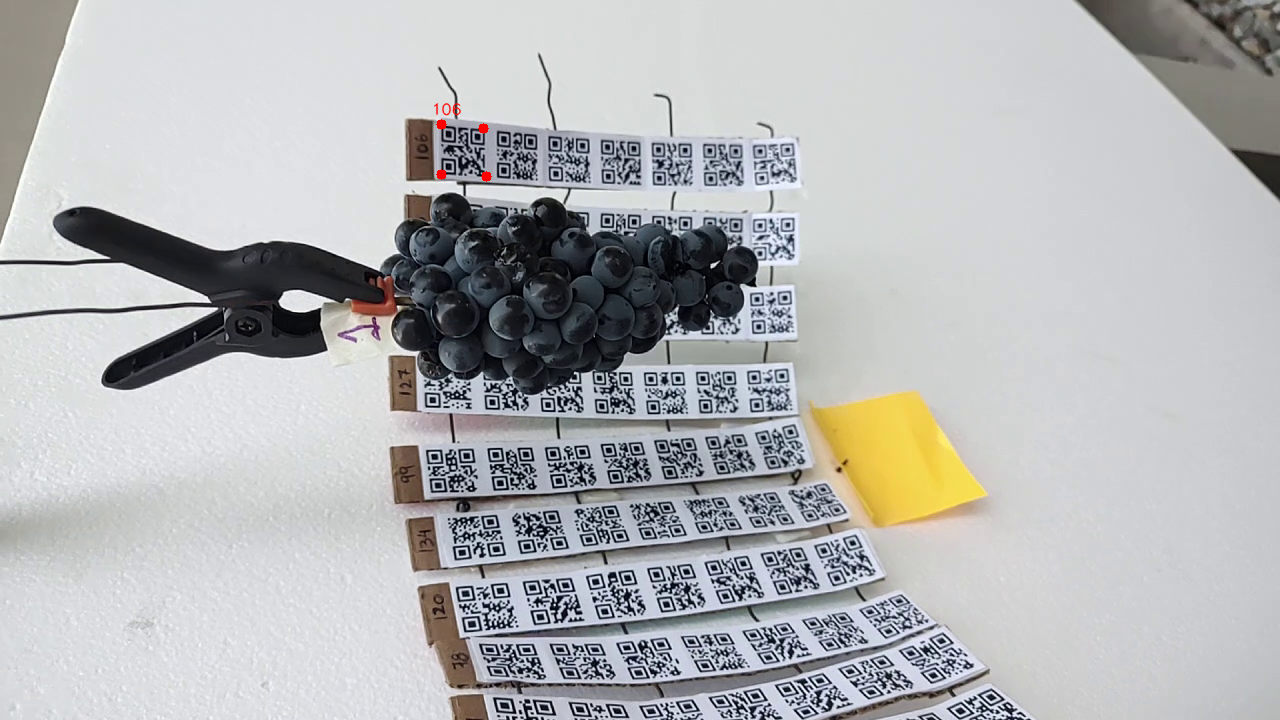 106
106
127
99
134
120
78